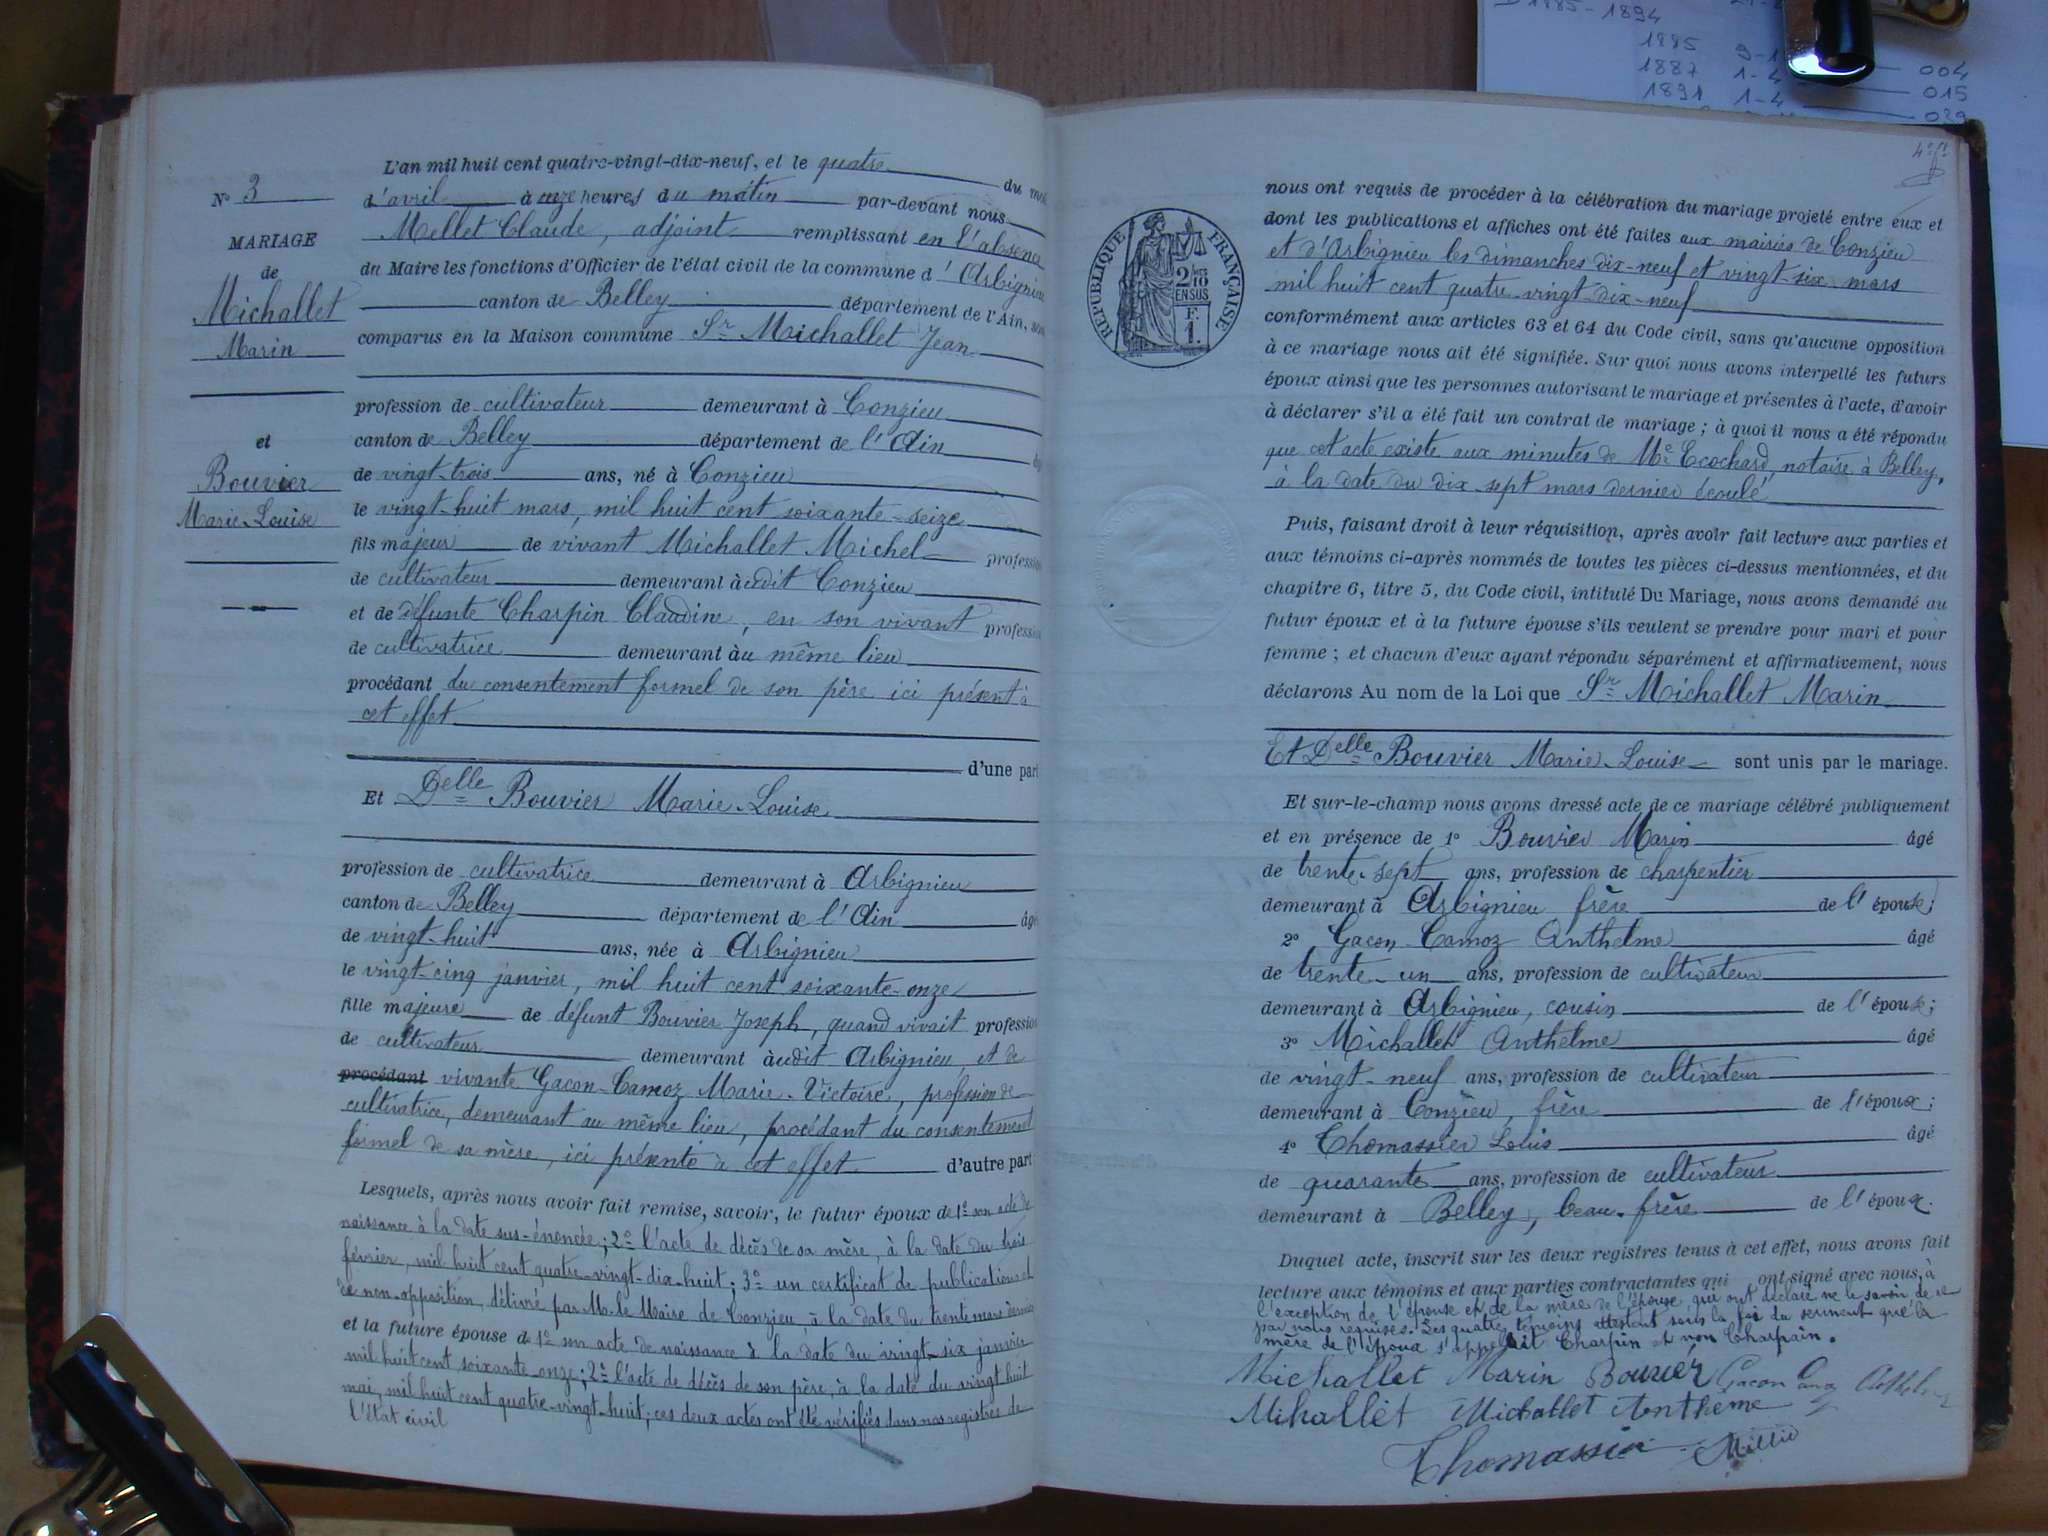 D 1885-1894
1885
1887 1-4 004
1891 1-4 015
029
L'an mil huit cent quatre-vingt-dix-neuf, et le quatre du mois
N° 3
d'avril à onze heures du matin par-devant nous
Mellet Claude, adjoint remplissant en l'absence
MARIAGE
du Maire les fonctions d'Officier de l'état civil de la commune d'Arbignieu
de
canton de Belley département de l'Ain, sont
Michallet
comparus en la Maison commune Sr Michallet Jean
Marin
profession de cultivateur demeurant à Conzieu
et
canton de Belley département de l'Ain âgé
Bouvier
de vingt-trois ans, né à Conzieu
Marie-Louise
le vingt-huit mars, mil huit cent soixante-seize
fils majeur de vivant Michallet Michel profession
de cultivateur demeurant àudit Conzieu
et de défunte Charpin Claudine, en son vivant profession
de cultivatrice demeurant àu même lieu
procédant du consentement formel de son père ici présent à
cet effet
d'une part
Et Delle Bouvier Marie-Louise
profession de cultivatrice demeurant à Arbignieu
canton de Belley département de l'Ain âgé
de vingt-huit ans, née à Arbignieu
le vingt-cinq janvier, mil huit cent soixante-onze
fille majeure de défunt Bouvier Joseph, quand vivait profession
de cultivateur demeurant àudit Arbignieu, et de
procédant vivante Gacon-Camoz Marie-Victoire, profession de
cultivatrice, demeurant au même lieu, procédant du consentement
formel de sa mère, ici présente à cet effet d'autre part
Lesquels, après nous avoir fait remise, savoir, le futur époux de 1° son acte de
naissance à la date sus-énoncée; 2° l'acte de décès de sa mère, à la date du trois
février, mil huit cent quatre-vingt-dix-huit; 3° un certificat de publications et
de non-opposition, délivré par Mr le Maire de Conzieu, à la date du trente mars dernier
et la future épouse de 1° son acte de naissance à la date du vingt-six janvier
mil huit cent soixante-onze; 2° l'acte de décès de son père, à la date du vingt huit
mai, mil huit cent quatre-vingt-huit; ces deux actes ont été vérifiés dans nos registres de
l'état civil
RÉPUBLIQUE FRANÇAISE
2/10
EN SUS
F.
1.
nous ont requis de procéder à la célébration du mariage projeté entre eux et
dont les publications et affiches ont été faites aux mairies de Conzieu
et d'Arbignieu les dimanches dix-neuf et vingt-six mars
mil huit cent quatre-vingt-dix-neuf
conformément aux articles 63 et 64 du Code civil, sans qu'aucune opposition
à ce mariage nous ait été signifiée. Sur quoi nous avons interpellé les futurs
époux ainsi que les personnes autorisant le mariage et présentes à l'acte, d'avoir
à déclarer s'il a été fait un contrat de mariage; à quoi il nous a été répondu
que cet acte existe aux minutes de Me Ecochard, notaire à Belley,
à la date du dix-sept mars dernier écoulé
Puis, faisant droit à leur réquisition, après avoir fait lecture aux parties et
aux témoins ci-après nommés de toutes les pièces ci-dessus mentionnées, et du
chapitre 6, titre 5, du Code civil, intitulé Du Mariage, nous avons demandé au
futur époux et à la future épouse s'ils veulent se prendre pour mari et pour
femme; et chacun d'eux ayant répondu séparément et affirmativement, nous
déclarons Au nom de la Loi que Sr Michallet Marin
Et Delle Bouvier Marie-Louise sont unis par le mariage.
Et sur-le-champ nous avons dressé acte de ce mariage célébré publiquement
et en présence de 1° Bouvier Marin âgé
de trente-sept ans, profession de charpentier
demeurant à Arbignieu frère de l'épouse;
2° Gacon-Camoz Anthelme âgé
de trente-un ans, profession de cultivateur
demeurant à Arbignieu, cousin de l'épouse;
3° Michallet Anthelme âgé
de vingt-neuf ans, profession de cultivateur
demeurant à Conzieu, frère de l'époux;
4° Thomassier Louis âgé
de quarante ans, profession de cultivateur
demeurant à Belley, beau-frère de l'époux.
Duquel acte, inscrit sur les deux registres tenus à cet effet, nous avons fait
lecture aux témoins et aux parties contractantes qui ont signé avec nous, à
l'exception de l'épouse et de la mère de l'épouse qui ont déclaré ne le savoir de ce
par nous requises. Les quatre témoins attestent sous la foi du serment que la
mère de l'époux s'appelait Charpin et non Charpain.
Michallet Marin Bouvier Gacon Camoz Anthelme
Mihallet Michallet Antheme
Thomassier Mellet